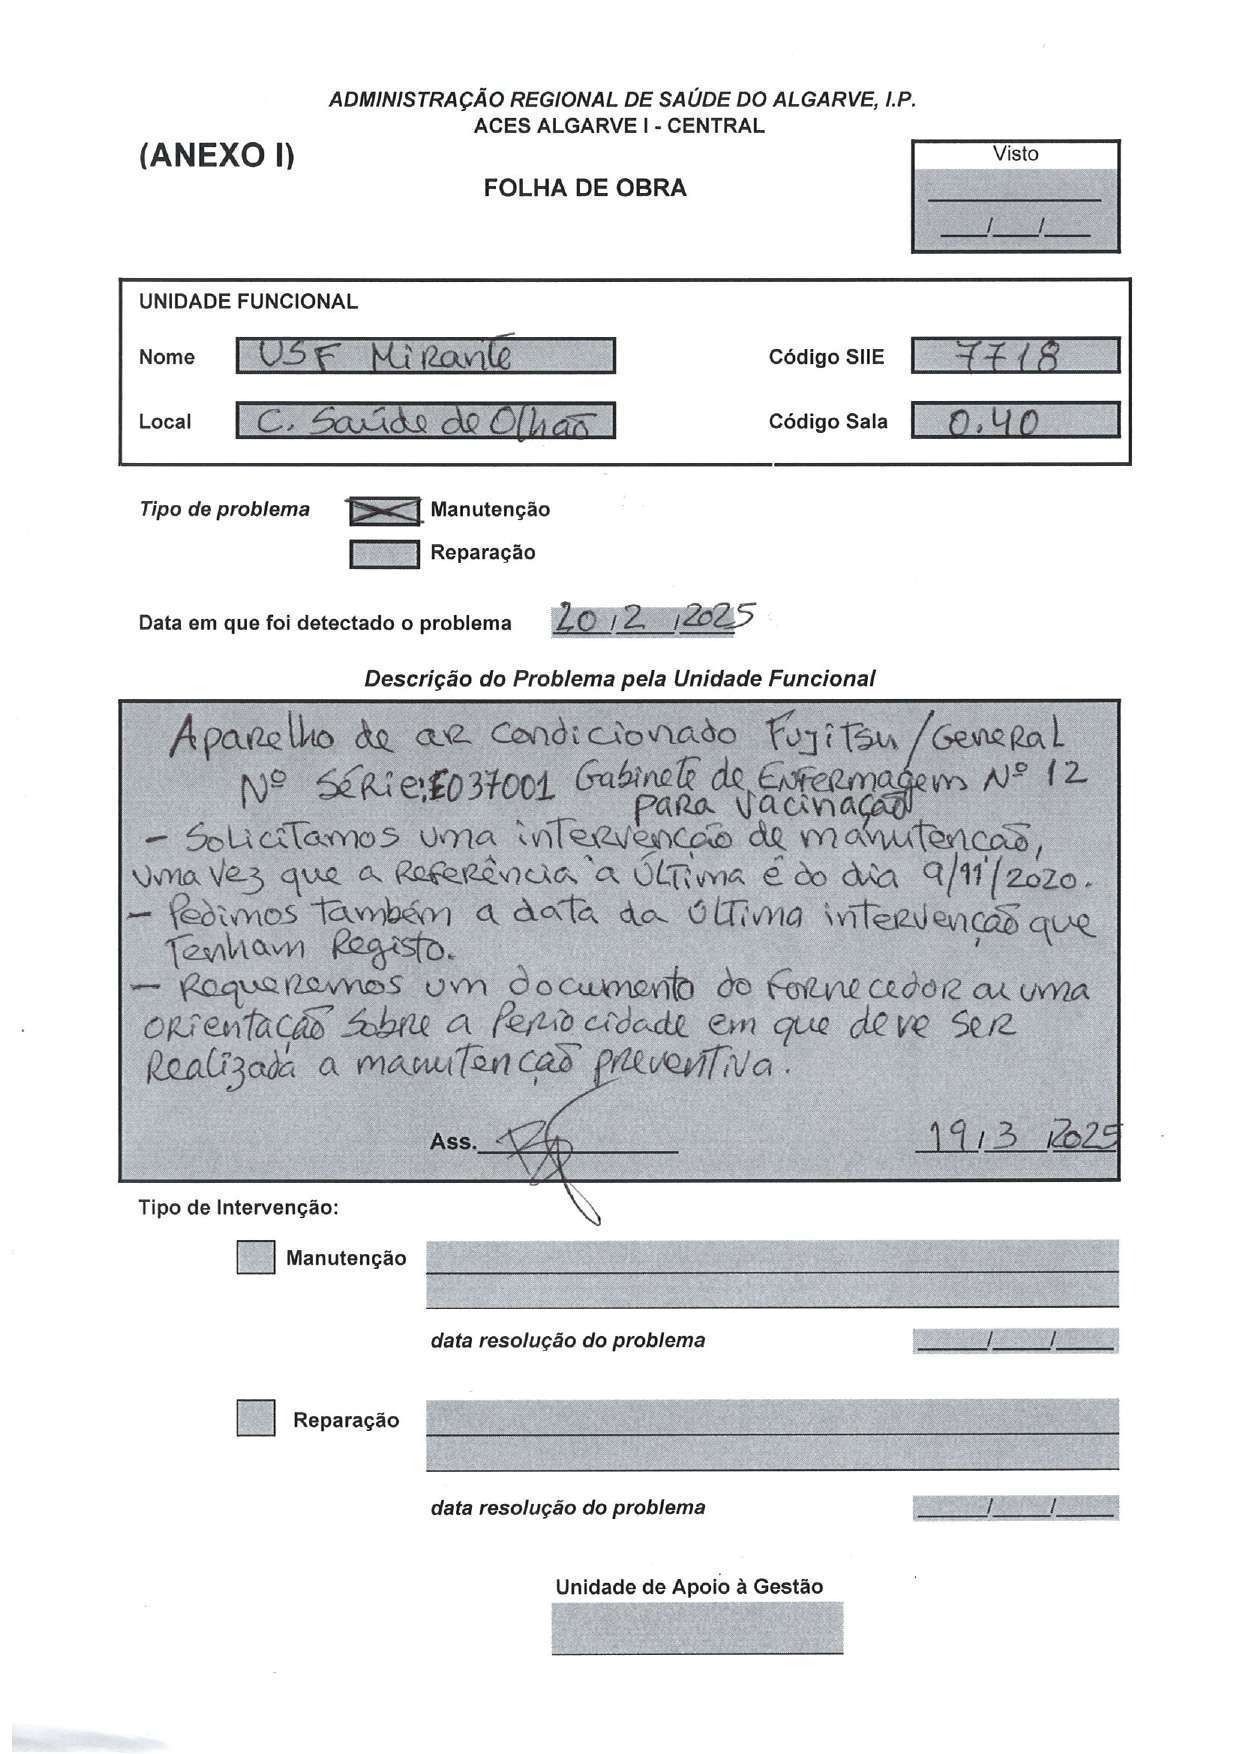 ADMINISTRAÇÃO REGIONAL DE SAÚDE DO ALGARVE, I.P.
ACES ALGARVE I - CENTRAL
(ANEXO I)
Visto
FOLHA DE OBRA
___/___/___
UNIDADE FUNCIONAL
Nome USF Mirante Código SIIE 7718
Local C. Saúde de Olhão Código Sala 0.40
Tipo de problema Manutenção
Reparação
Data em que foi detectado o problema 20/2/2025
Descrição do Problema pela Unidade Funcional
Aparelho de ar condicionado Fujitsu/General
Nº Série: E037001 Gabinete de Enfermagem Nº 12
para vacinação
- Solicitamos uma intervenção de manutenção,
uma vez que a referência à última é do dia 9/11/2020.
- Pedimos também a data da última intervenção que
tenham registo.
- Requeremos um documento do fornecedor ou uma
orientação sobre a periocidade em que deve ser
realizada a manutenção preventiva.
Ass. 19/3/2025
Tipo de Intervenção:
Manutenção
data resolução do problema ___/___/___
Reparação
data resolução do problema ___/___/___
Unidade de Apoio à Gestão